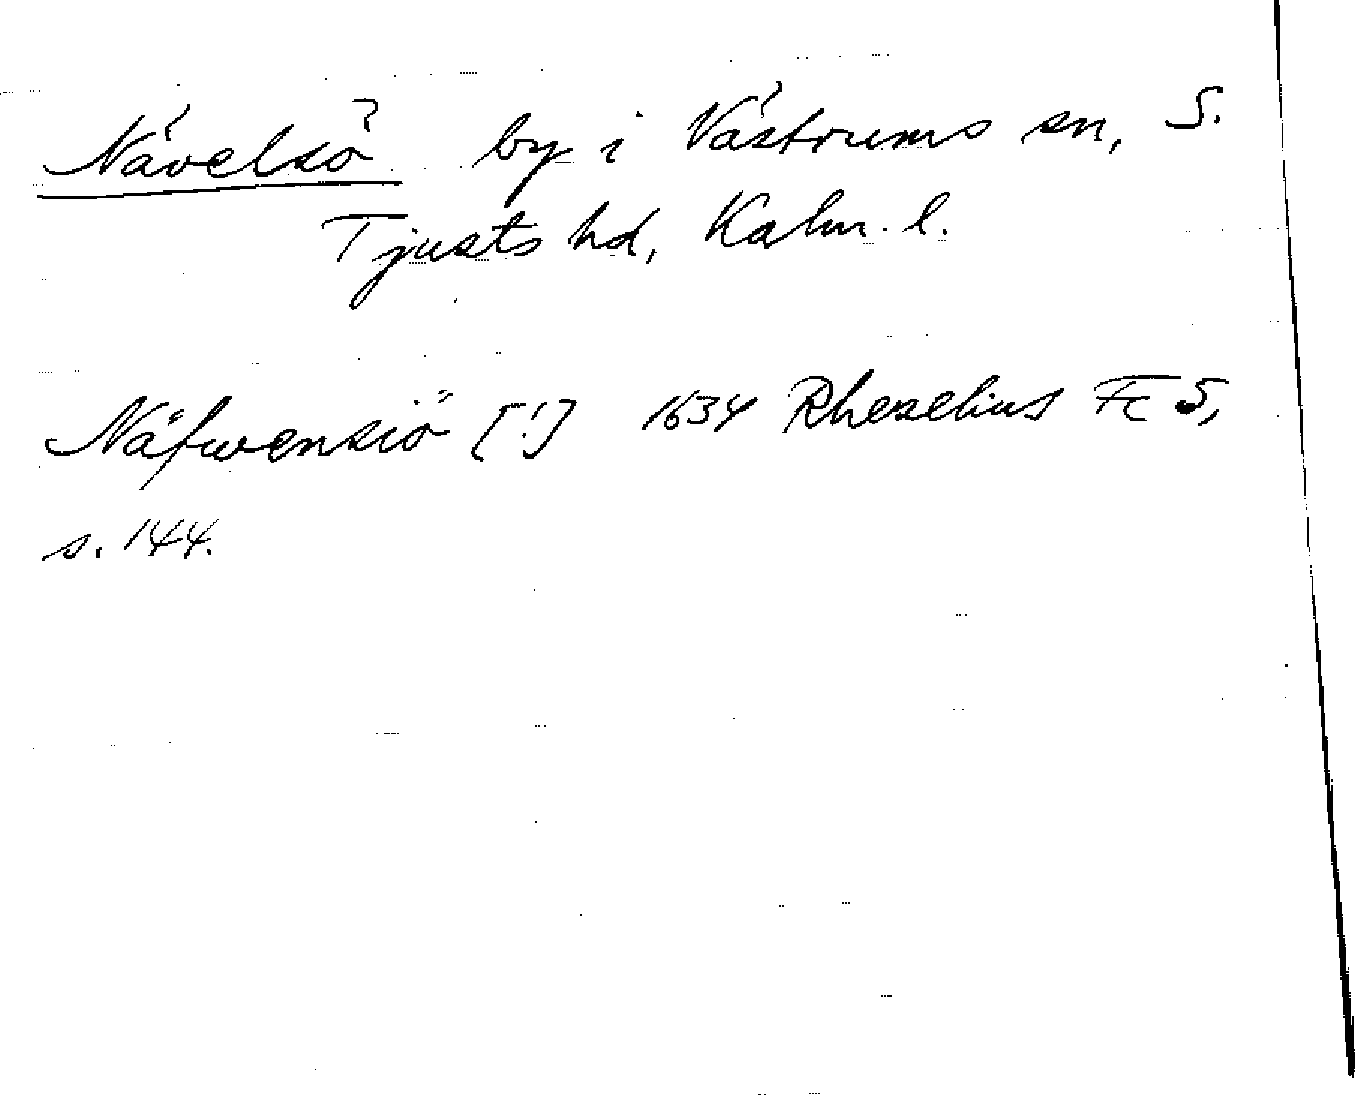 Nävelsö by i Västrums sn, S.
Tjusts hd, Kalm. l.
Näfwensiö [!] 1634 Rhezelius Fc 5,
s. 144.